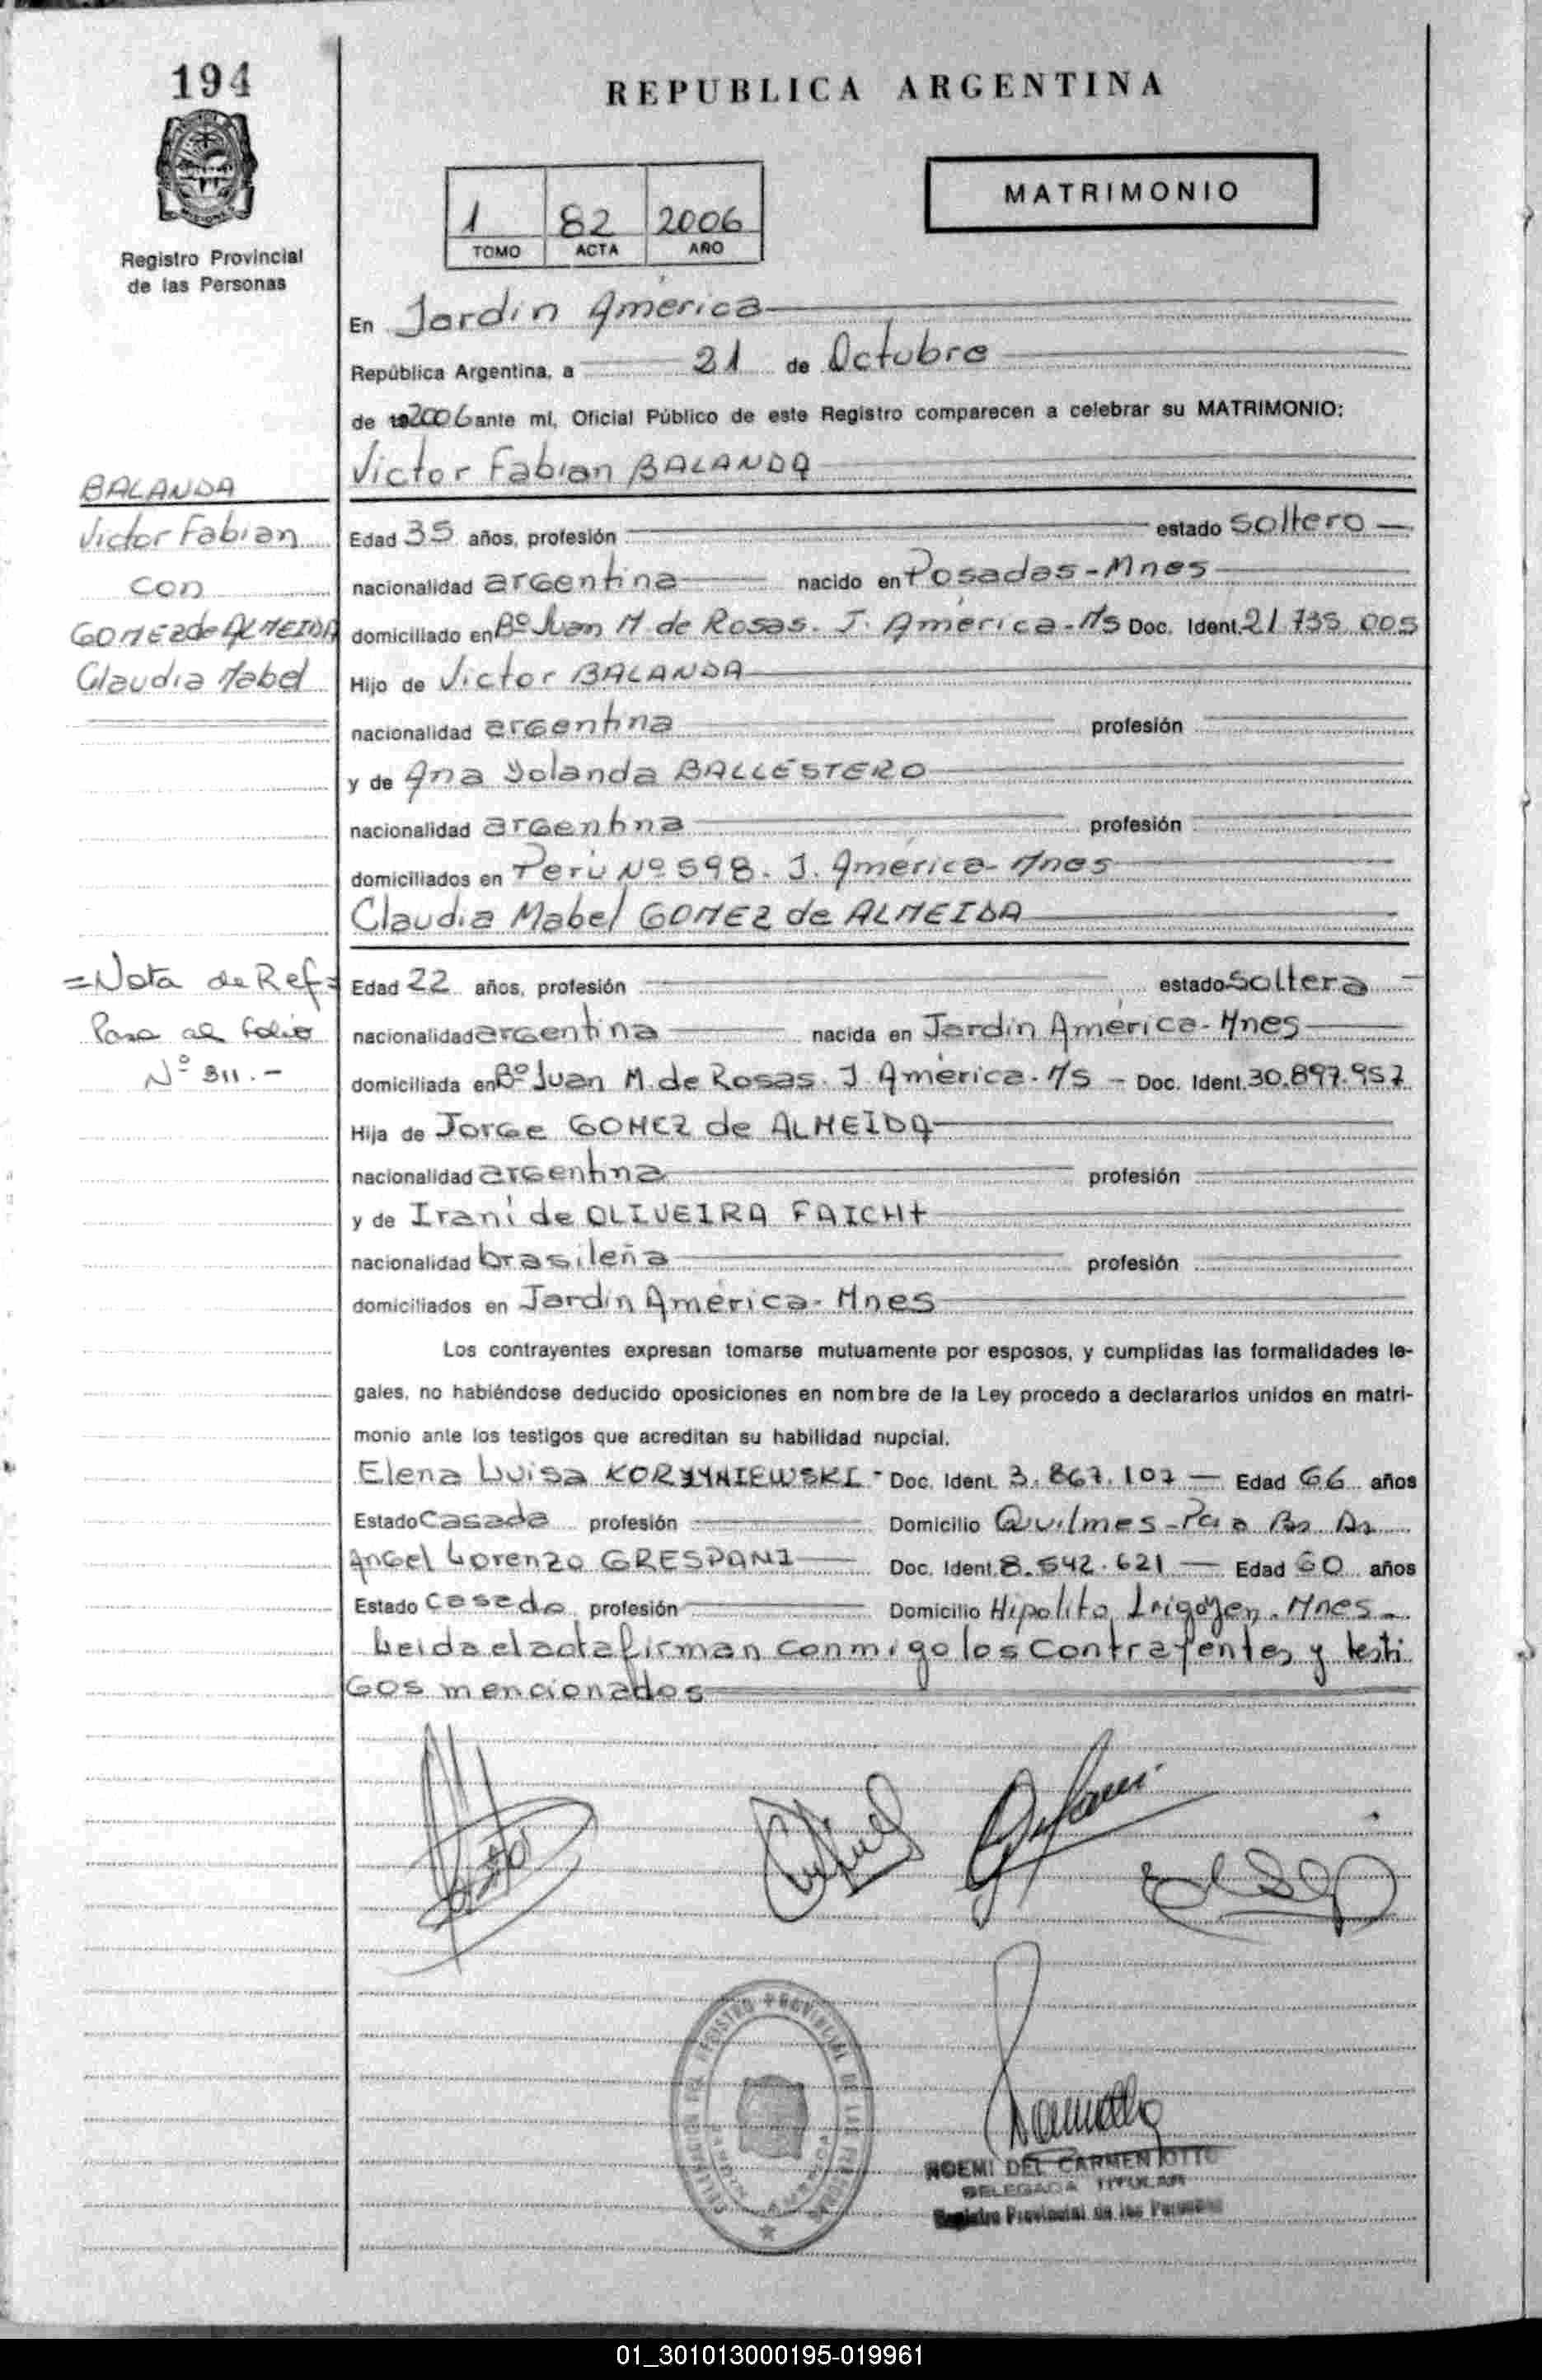 194
REPUBLICA ARGENTINA
MATRIMONIO
1 82 2006
TOMO ACTA AÑO
Registro Provincial
de las Personas
En Jardin América
República Argentina, a 21 de Octubre
de 192006 ante mi, Oficial Público de este Registro comparecen a celebrar su MATRIMONIO:
Victor Fabian BALANDA
BALANDA
Victor Fabian
con
GOMEZ de ALMEIDA
Claudia Mabel
Edad 35 años, profesión estado Soltero
nacionalidad argentina nacido en Posadas-Mnes
domiciliado en Bº Juan M de Rosas. J. América-Ms Doc. Ident. 21.735.005
Hijo de Victor BALANDA
nacionalidad argentina profesión
y de Ana Yolanda BALLESTERO
nacionalidad argentina profesión
domiciliados en Perú Nº 598. J. América-Mnes
Claudia Mabel GOMEZ de ALMEIDA
=Nota de Ref=
Pasa al folio
Nº 311.-
Edad 22 años, profesión estado Soltera
nacionalidad argentina nacida en Jardin América-Mnes
domiciliada en Bº Juan M. de Rosas. J. América-Ms - Doc. Ident. 30.897.957
Hija de Jorge GOMEZ de ALMEIDA
nacionalidad argentina profesión
y de Irani de OLIVEIRA FAICHT
nacionalidad brasileña profesión
domiciliados en Jardin América-Mnes
Los contrayentes expresan tomarse mutuamente por esposos, y cumplidas las formalidades le-
gales, no habiéndose deducido oposiciones en nombre de la Ley procedo a declararlos unidos en matri-
monio ante los testigos que acreditan su habilidad nupcial.
Elena Luisa KORZYNIEWSKI - Doc. Ident. 3.867.107 - Edad 66 años
Estado Casada profesión Domicilio Quilmes-Pcia Bs As
Angel Lorenzo GRESPANI Doc. Ident. 8.542.621 - Edad 60 años
Estado Casado profesión Domicilio Hipolito Irigoyen. Mnes-
Leida el acta firman conmigo los contrayentes y testi
gos mencionados
REGISTRO PROVINCIAL DE LAS PERSONAS
NOEMI DEL CARMEN OTTO
DELEGADA TITULAR
Registro Provincial de las Personas
01_301013000195-019961